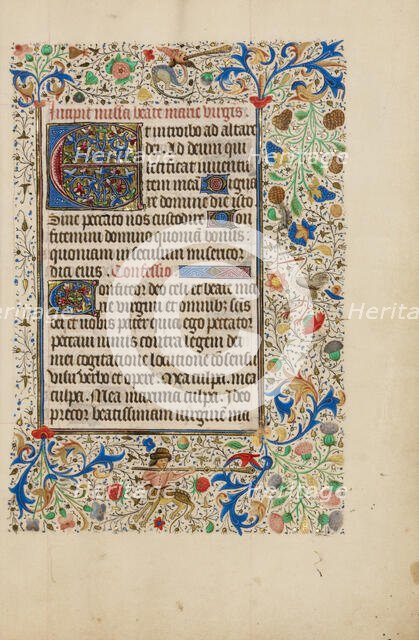 Incipit missa beate marie virgis
Et introibo ad altare
dei. Ad deum qui
letificat iuuentu
tem mea Digna
re domine die isto
Sine peccato nos custodire Con
fitemini domino quoniam bonus:
quoniam in seculum misericor
dia eius. Confessio
Confiteor deo celi et beate ma
rie virgini et omnibus scis
dei et uobis pater quia ego peccator
peccaui nimis contra legem dei
mei cogitatione locutione consensu
visu verbo et opere. Mea culpa. mea
culpa. Mea maxima culpa. Ideo
precor beatissimam uirginem ma
Heritage
Images